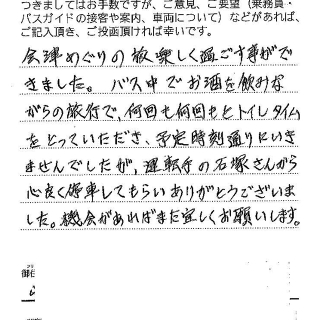 つきましてはお手数ですが、ご意見、ご要望（乗務員・
バスガイドの接客や案内、車両について）などがあれば、
ご記入頂き、ご投函頂ければ幸いです。
会津めぐりの旅、楽しく過ごす事がで
きました。バス中でお酒を飲みな
がらの旅行で、何回も何回もとトイレタイム
をとっていただき、予定時刻通りにいき
ませんでしたが、運転手の石塚さんから
心良く停車してもらいありがとうございま
した。機会があればまた宜しくお願いします。